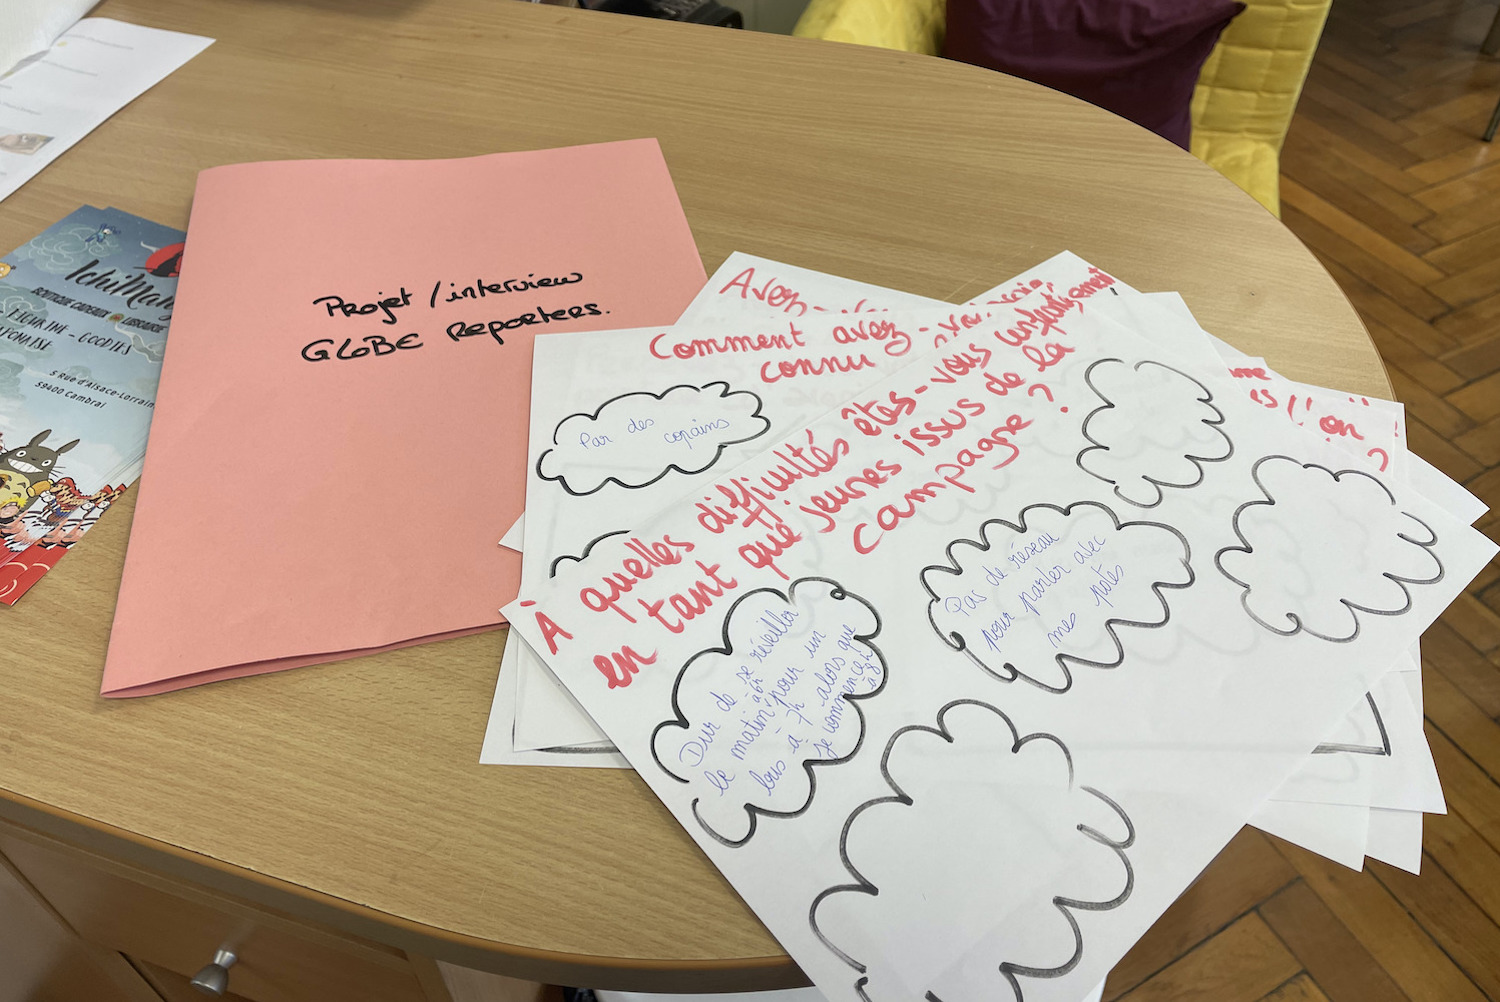 IchiMan
BOUTIQUE CADEAUX LIBRAIRIE
GOODIES
5 Rue d'Alsace-Lorrain
59400 Cambrai
Projet / interview
GLOBE Reporters.
Avez-vo
Comment avez-
connu
Par des
copains
À quelles difficultés êtes-vous
en tant que jeunes issus de la
campagne ?
Dur de se réveiller
à 6h
le matin pour un
bus à 7h alors que
je commence
à 8h
Pas de réseau
pour parler avec
mes potes
on
?